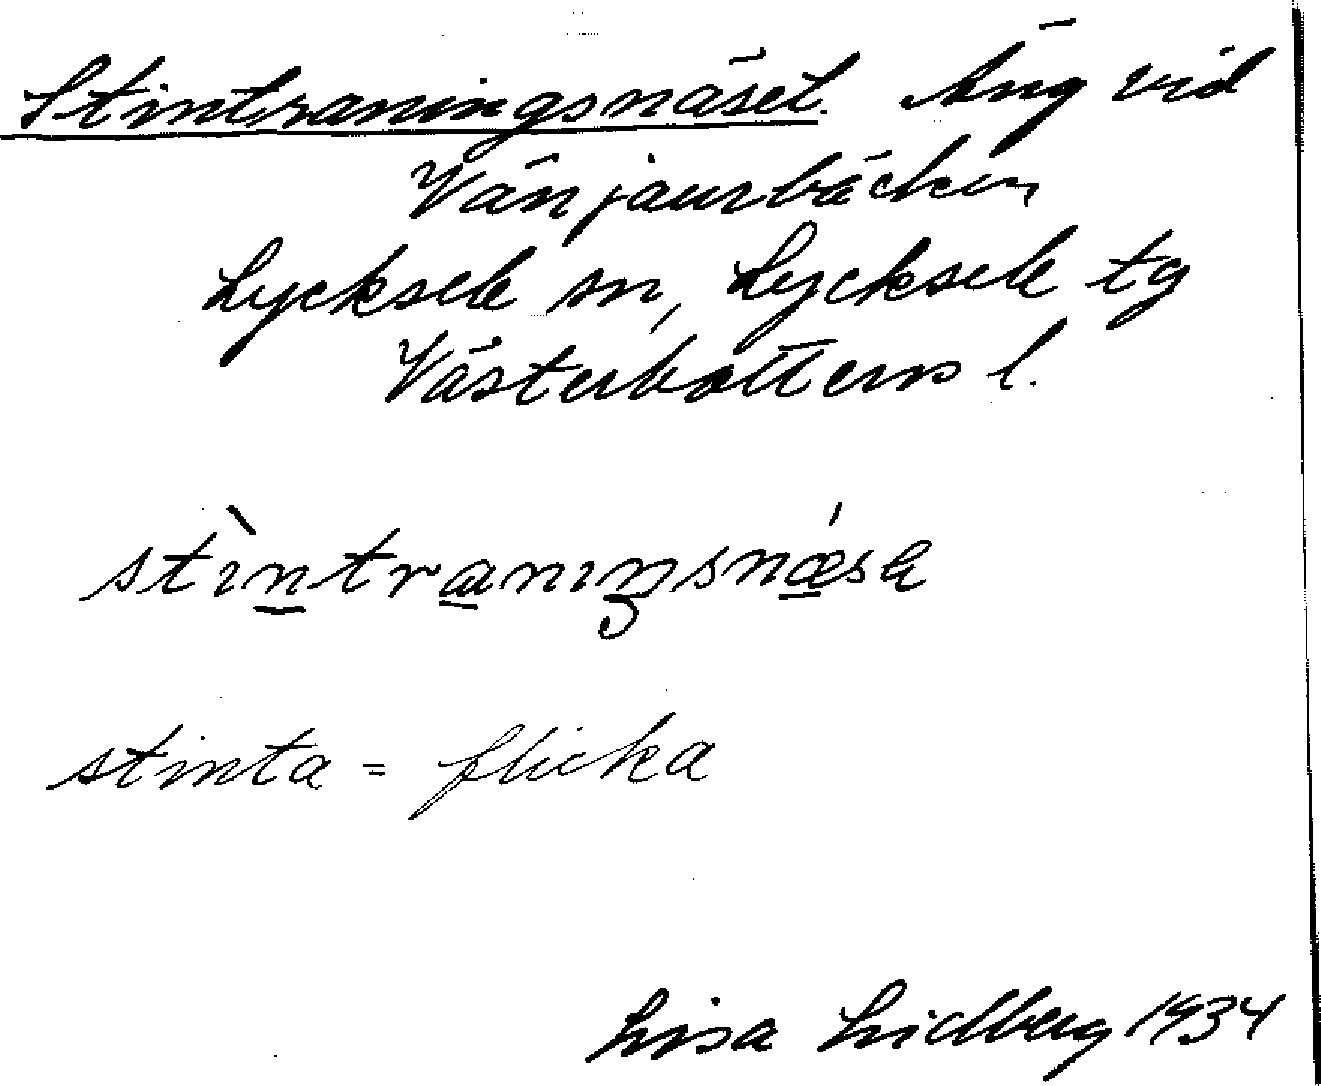 Stintraningsnäset. Äng vid
Vänjaurbäcken
Lycksele sn, Lycksele tg
Västerbottens l.
stìntranıŋsnǽsə
stinta = flicka
Lisa Lidberg 1934